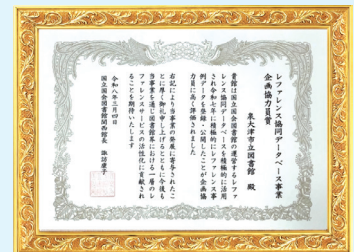 レファレンス協同データベース事業
企画協力員賞
泉大津市立図書館 殿
貴館は国立国会図書館の運営するレファ
レンス協同データベースを積極的に活用
され令和七年に積極的にレファレンス事
例データを登録・公開したことが企画協
力員に高く評価されました
右記により当事業の発展に寄与されたこ
とに厚く御礼申し上げるとともに今後も
当事業を通じ図書館界における一層のレ
ファレンスサービスの活性化に貢献され
ることを期待いたします
令和八年三月四日
国立国会図書館関西館長 諏訪康子